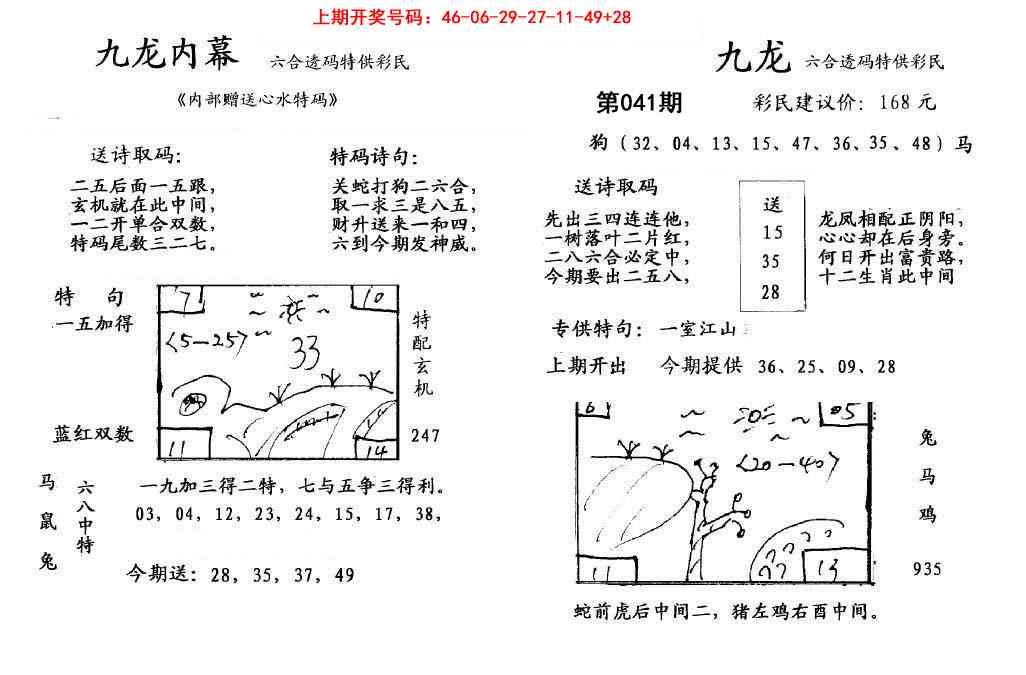 上期开奖号码：46-06-29-27-11-49+28
九龙内幕 六合透码特供彩民
《内部赠送心水特码》
送诗取码：
二五后面一五跟，
玄机就在此中间，
一二开单合双数，
特码尾数三二七。
特码诗句：
关蛇打狗二六合，
取一求三是八五，
财升送来一和四，
六到今期发神威。
特 句
一五加得
蓝红双数
7
10
(5-25)
33
11
14
特配玄机
247
马鼠兔
六八中特
一九加三得二特，七与五争三得利。
03，04，12，23，24，15，17，38，
今期送：28，35，37，49
九龙 六合透码特供彩民
第041期 彩民建议价：168元
狗（32、04、13、15、47、36、35、48）马
送诗取码
先出三四连连他，
一树落叶二片红，
二八六合必定中，
今期要出二五八，
送
15
35
28
龙凤相配正阴阳，
心心却在后身旁。
何日开出富贵路，
十二生肖此中间
专供特句：一室江山
上期开出 今期提供 36、25、09、28
6
05
(20-40)
11
13
兔
马
鸡
935
蛇前虎后中间二，猪左鸡右酉中间。